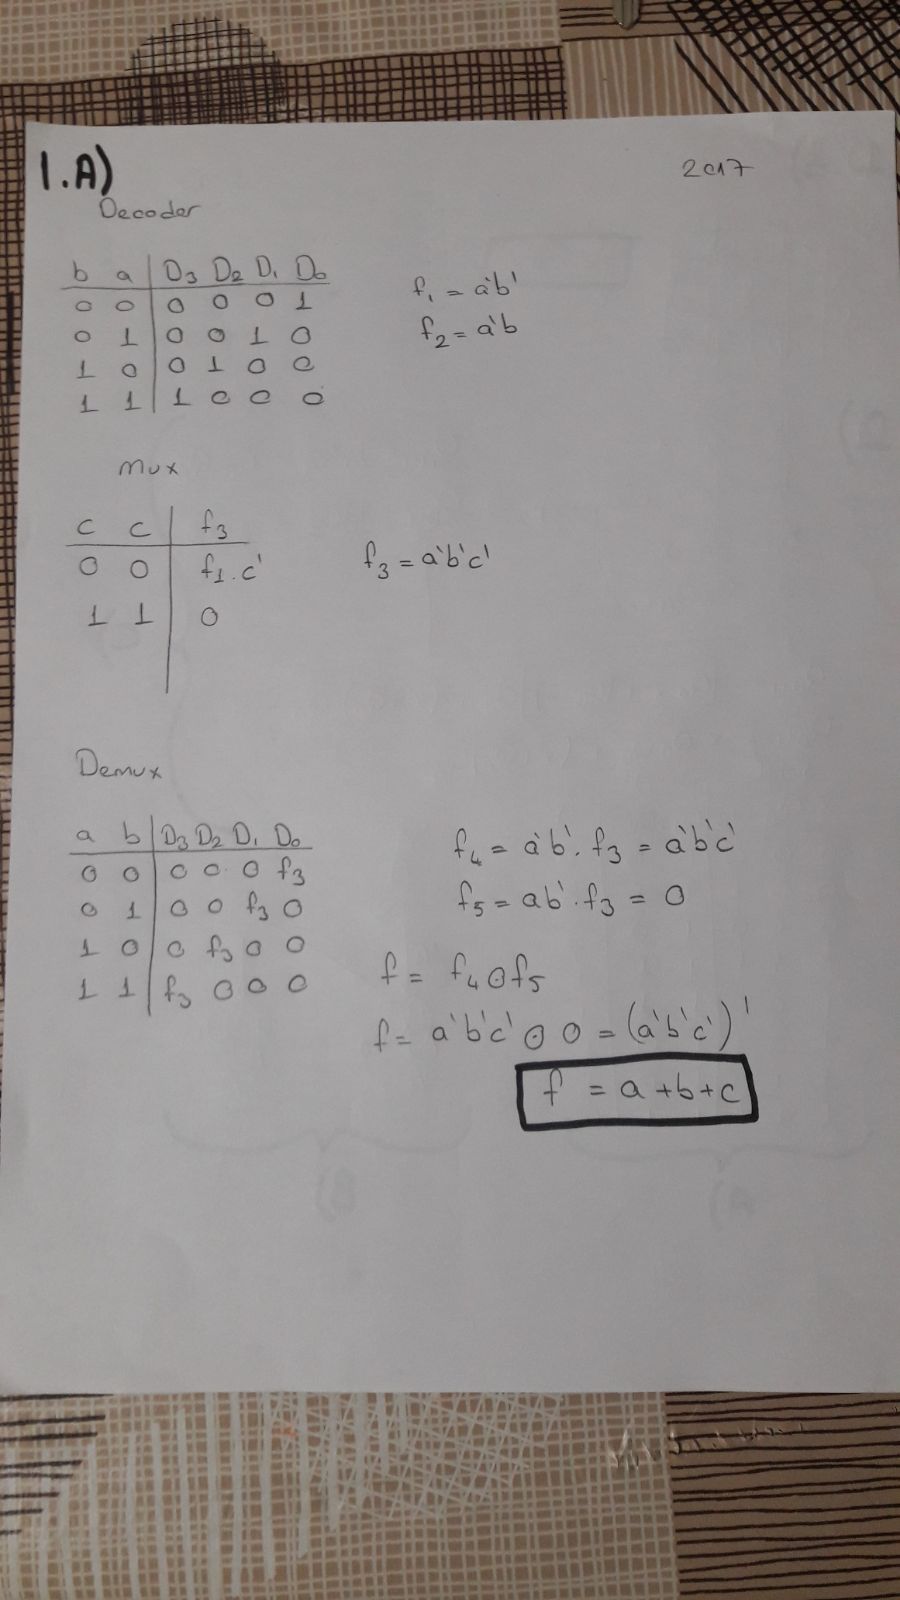 1.A)
2017
Decoder
b a | D3 D2 D1 D0
0 0 | 0 0 0 1
0 1 | 0 0 1 0
1 0 | 0 1 0 0
1 1 | 1 0 0 0
f1 = a'b'
f2 = a'b
mux
c c | f3
0 0 | f1.c'
1 1 | 0
f3 = a'b'c'
Demux
a b | D3 D2 D1 D0
0 0 | 0 0 0 f3
0 1 | 0 0 f3 0
1 0 | 0 f3 0 0
1 1 | f3 0 0 0
f4 = a'b'. f3 = a'b'c'
f5 = ab'. f3 = 0
f = f4 ⊙ f5
f = a'b'c' ⊙ 0 = (a'b'c')'
f = a+b+c